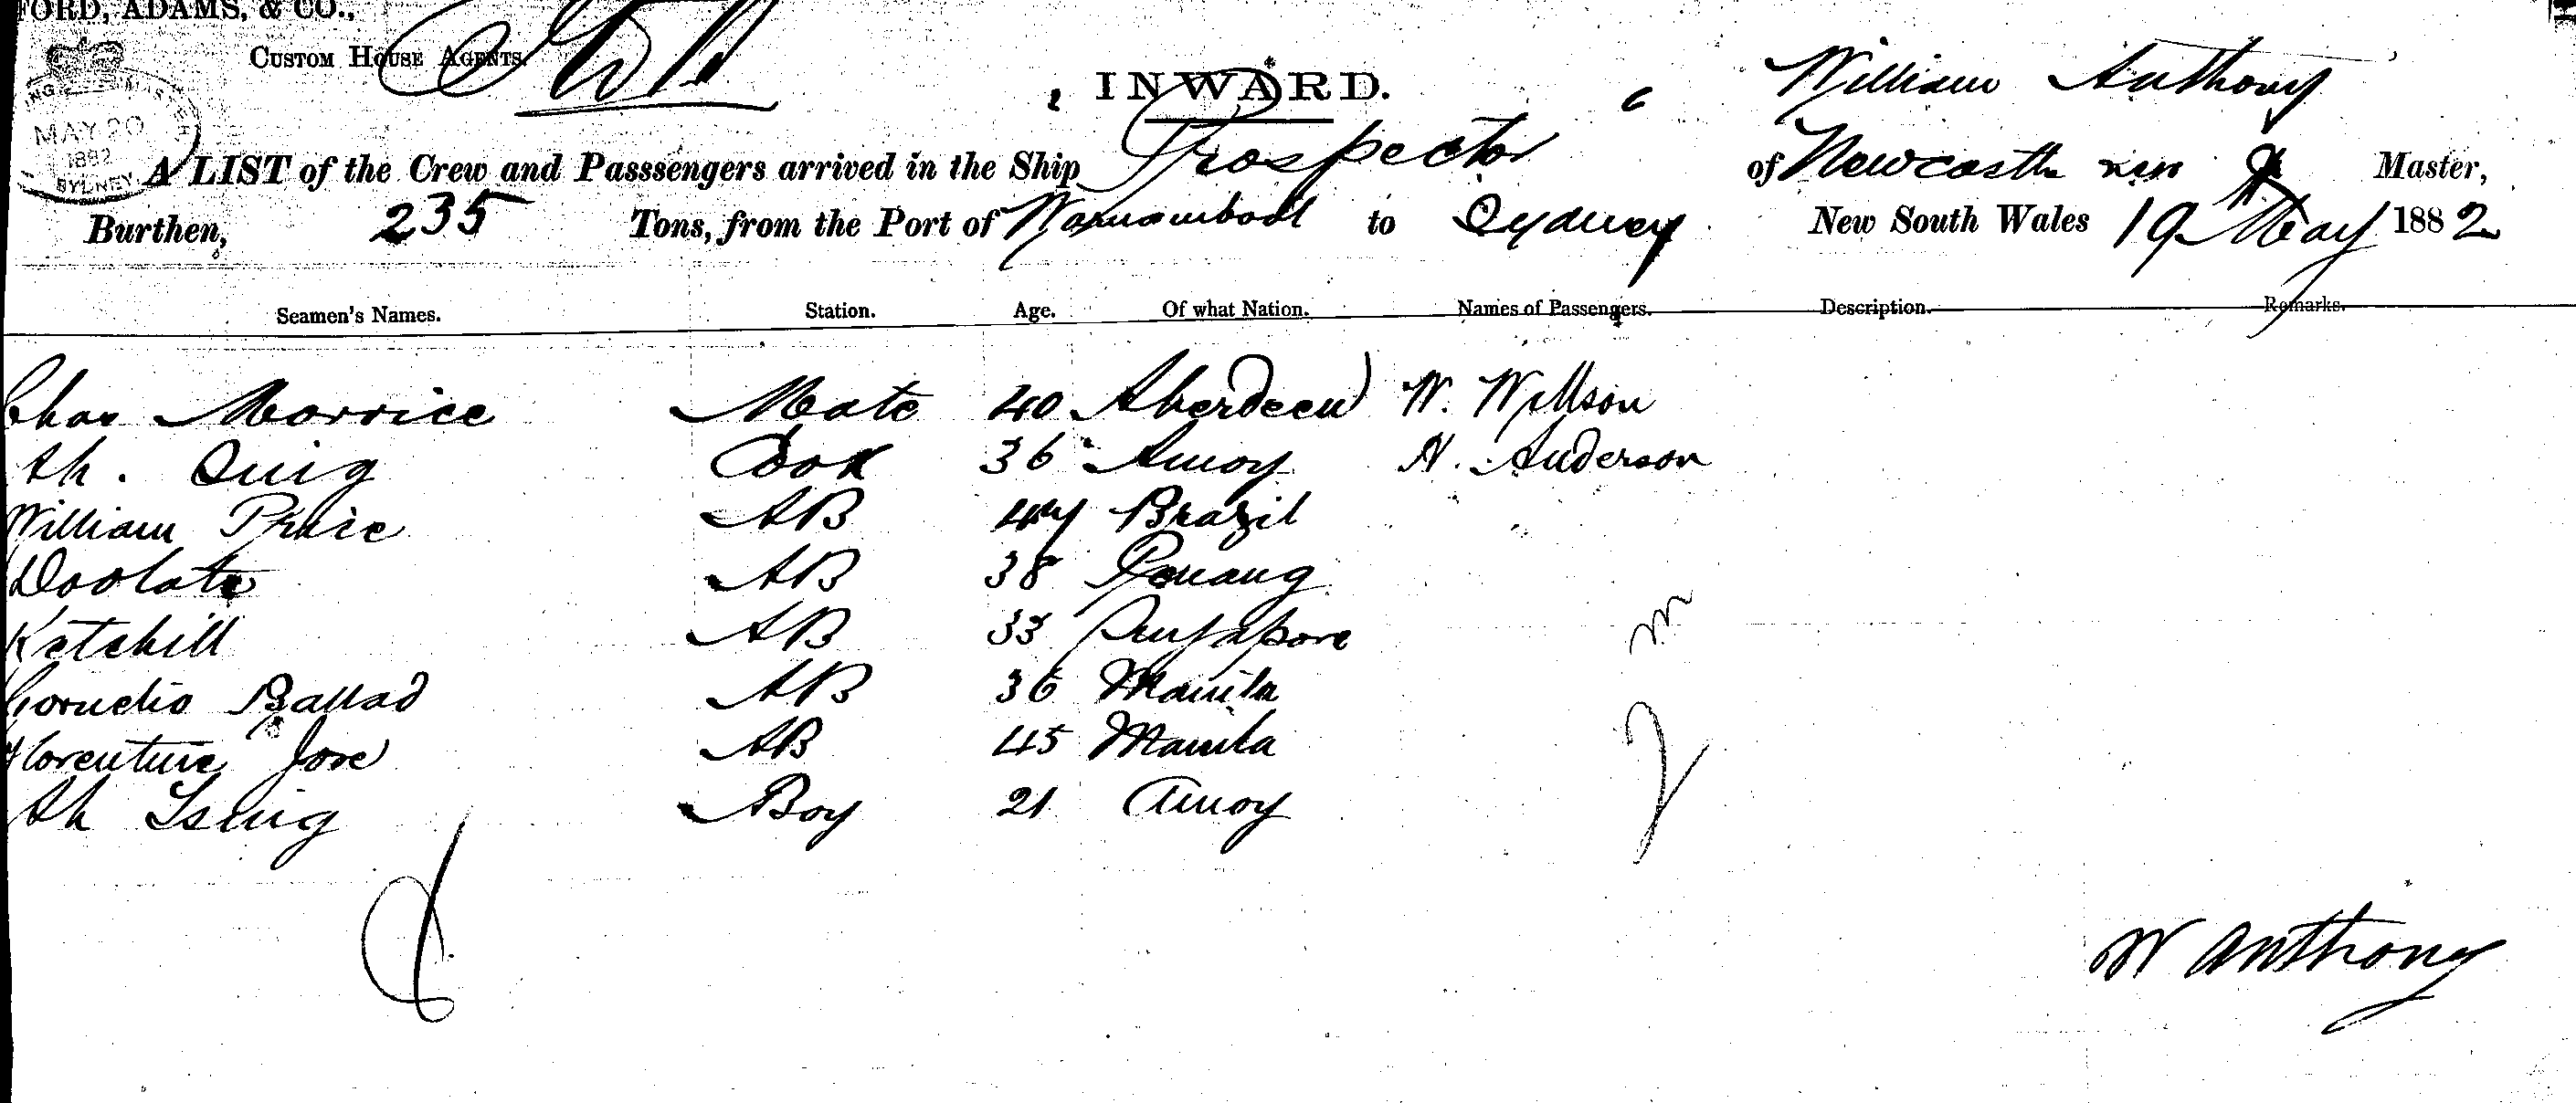 FORD, ADAMS, & CO.,
CUSTOM HOUSE AGENTS.
INWARD.
William Anthony
MAY 20
1882
SYDNEY
A LIST of the Crew and Passsengers arrived in the Ship Prospector of Newcastle nsw Master,
Burthen, 235 Tons, from the Port of to Sydney New South Wales 19 May 1882
Seamen's Names. Station. Age. Of what Nation. Names of Passengers. Description. Remarks.
Chas Morrice Mate 40 Aberdeen W. Willson
Ah. Quig Cook 36 Amoy H. Anderson
William AB Brazil
Doolate AB 38 Penang
Ketchill AB 33 Singapore
Cornelio Ballad AB 36 Manila
Florentine Jose AB 45 Manila
Ah Tsing Boy 21 Amoy
W Anthony